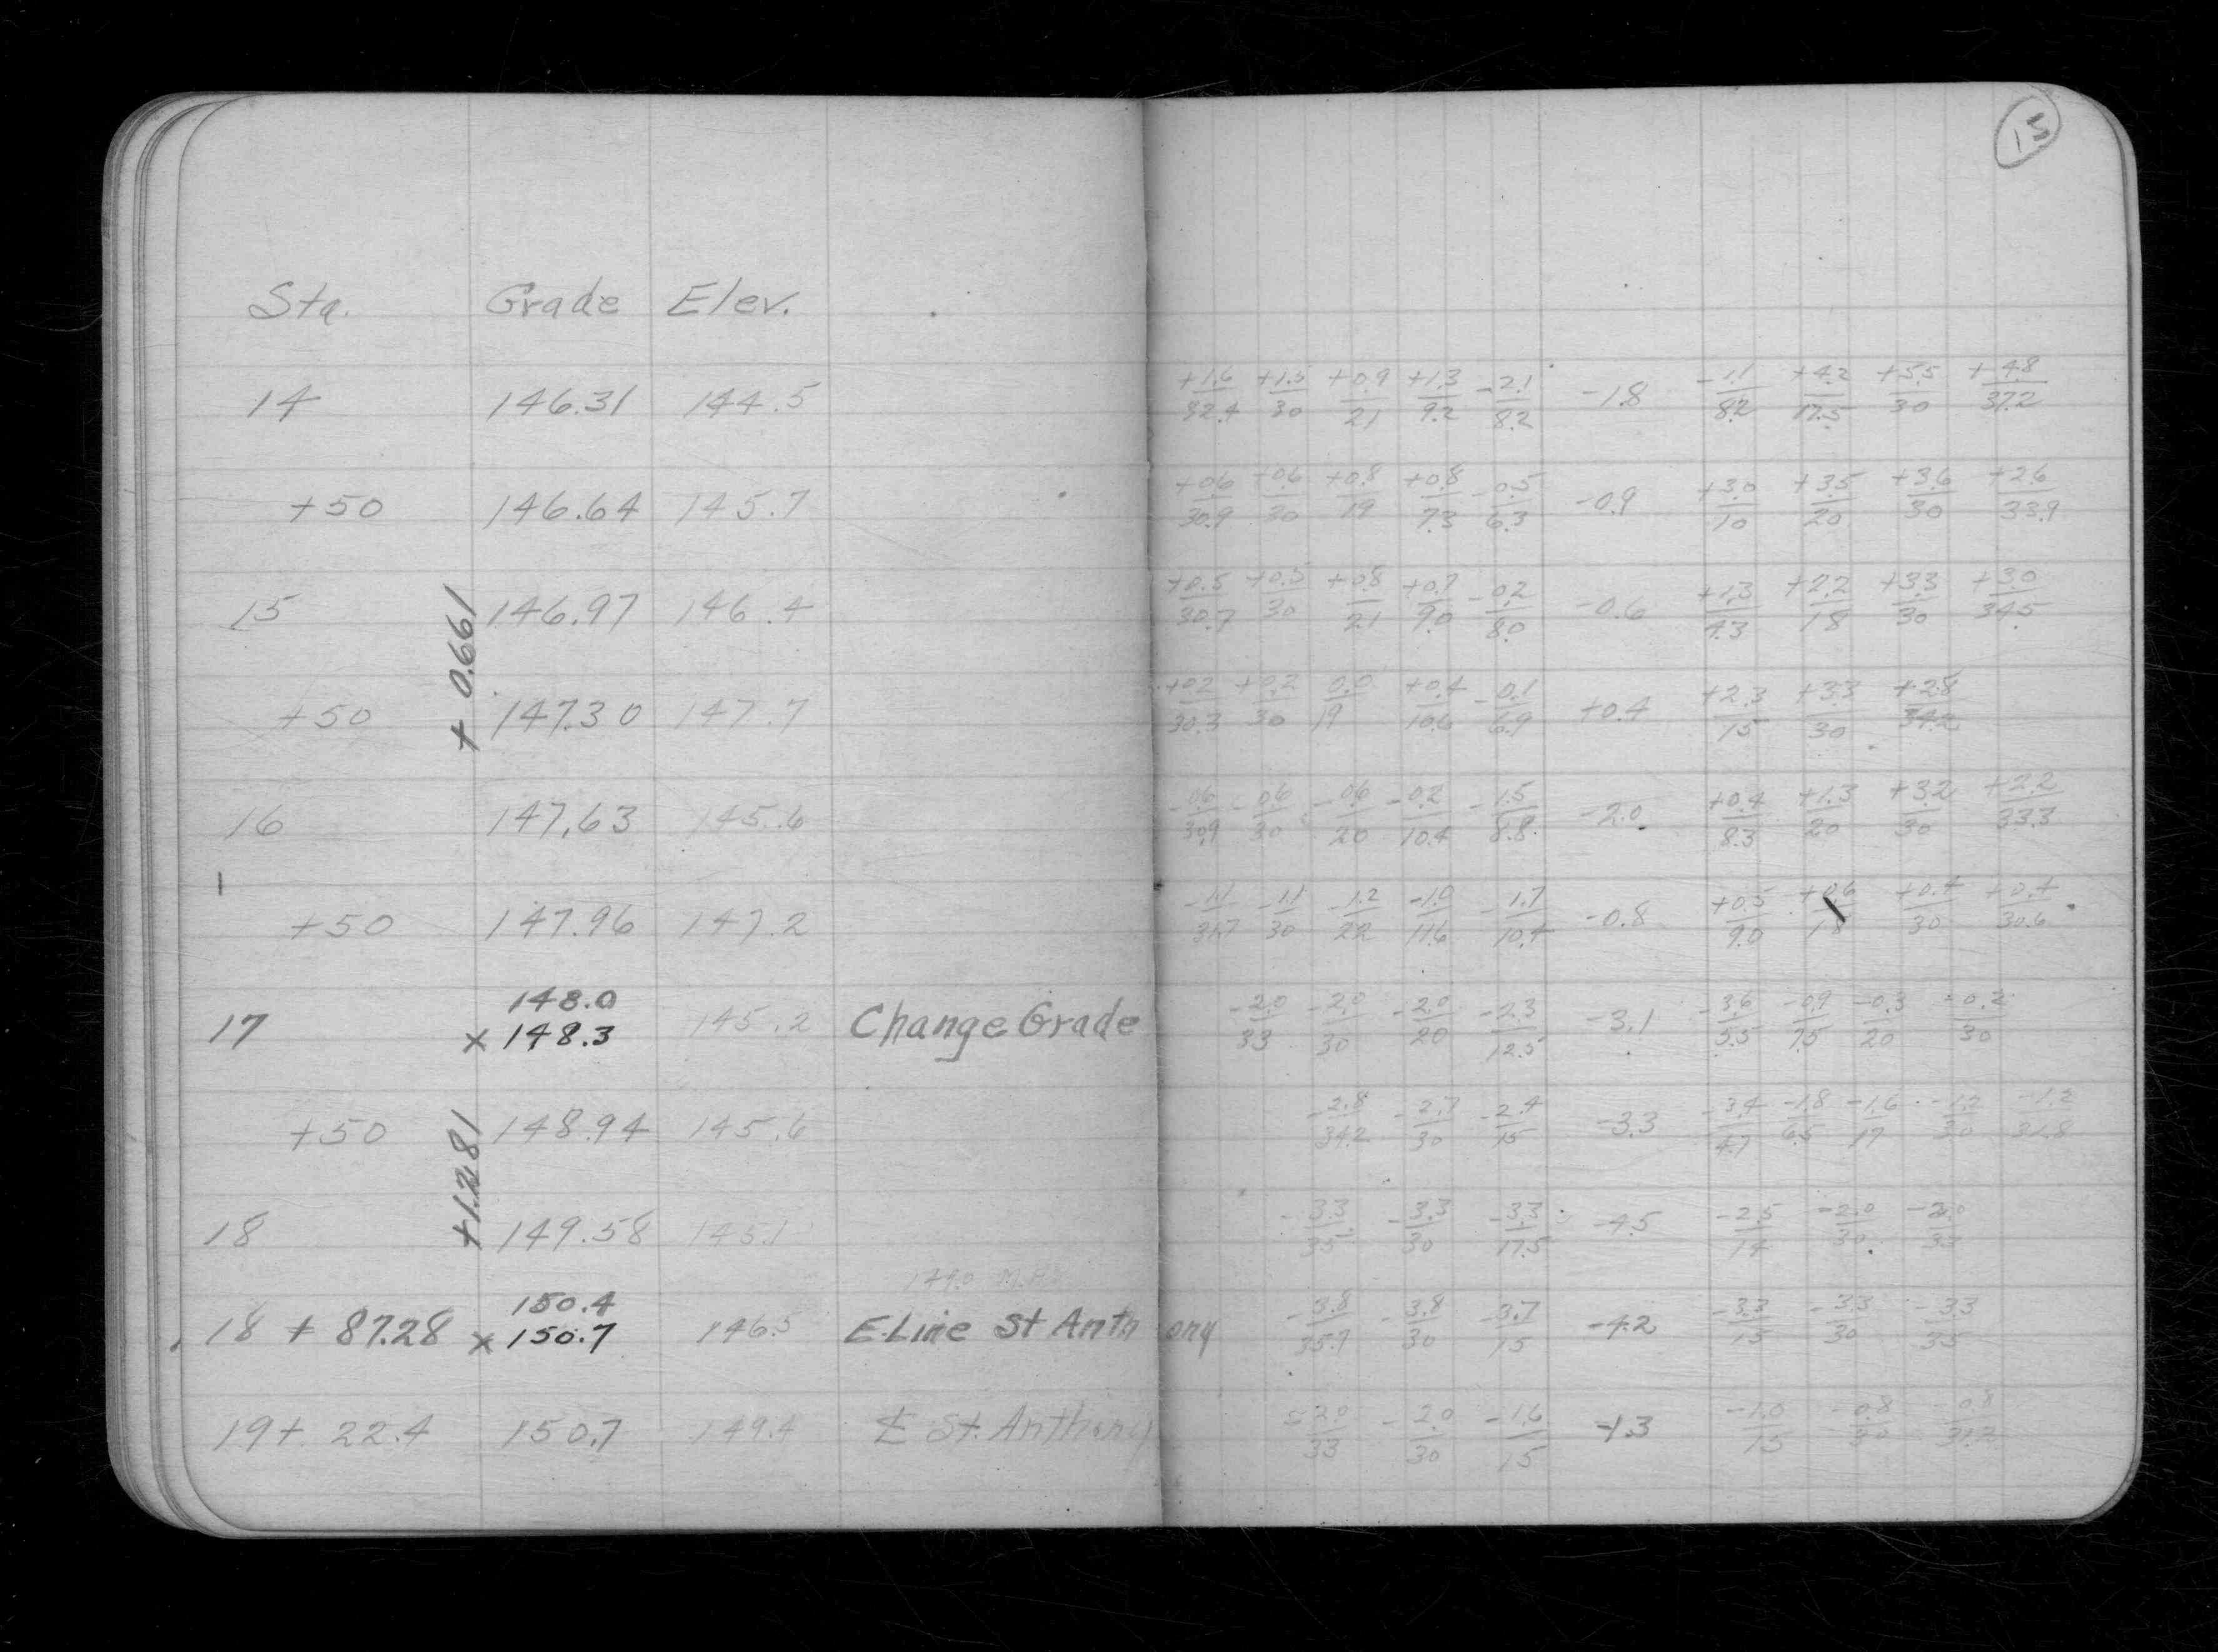 15
Sta. Grade Elev.
14 146.31 144.5 +1.6/32.4 +1.5/30 +0.9/21 +1.3/9.2 -2.1/8.2 -1.8 -1.1/8.2 +4.2/17.5 +5.5/30 +4.8/37.2
+50 146.64 145.7 +0.6/30.9 +0.6/30 +0.8/19 +0.8/7.3 -0.5/6.3 -0.9 +3.0/10 +3.5/20 +3.6/30 +2.6/33.9
15 146.97 146.4 +0.5/30.7 +0.5/30 +0.8/21 +0.7/9.0 -0.2/8.0 -0.6 +1.3/4.3 +2.2/18 +3.3/30 +3.0/34.5
+0.661
+50 147.30 147.7 +0.2/30.3 +0.2/30 0.0/19 +0.4/10.6 -0.1/6.9 +0.4 +2.3/15 +3.3/30 +2.8/34.2
16 147.63 145.6 -0.6/30.9 -0.6/30 -0.6/20 -0.2/10.4 -1.5/8.8 -2.0 +0.4/8.3 +1.3/20 +3.2/30 +2.2/33.3
+50 147.96 147.2 -1.1/31.7 -1.1/30 -1.2/22 -1.0/11.6 -1.7/10.4 -0.8 +0.5/9.0 +0.6/18 +0.4/30 +0.4/30.6
148.0
17 x 148.3 145.2 Change Grade -2.0/33 -2.0/30 -2.0/20 -2.3/12.5 -3.1 -3.6/5.5 -0.9/7.5 -0.3/20 -0.2/30
+50 148.94 145.6 -2.8/34.2 -2.7/30 -2.4/15 -3.3 -3.4/4.7 -1.8/6.5 -1.6/17 -1.2/30 -1.2/31.8
+1.281
18 149.58 145.1 -3.3/35 -3.3/30 -3.3/17.5 -4.5 -2.5/14 -2.0/30 -2.0/33
149.0
150.4
18 + 87.28 x 150.7 146.5 E.Line St Anthony -3.8/35.7 -3.8/30 -3.7/15 -4.2 -3.3/15 -3.3/30 -3.3/35
19+ 22.4 150.7 149.4 ℄ St. Anthony -2.0/33 -2.0/30 -1.6/15 -1.3 -1.0/15 -0.8/30 -0.8/31.2